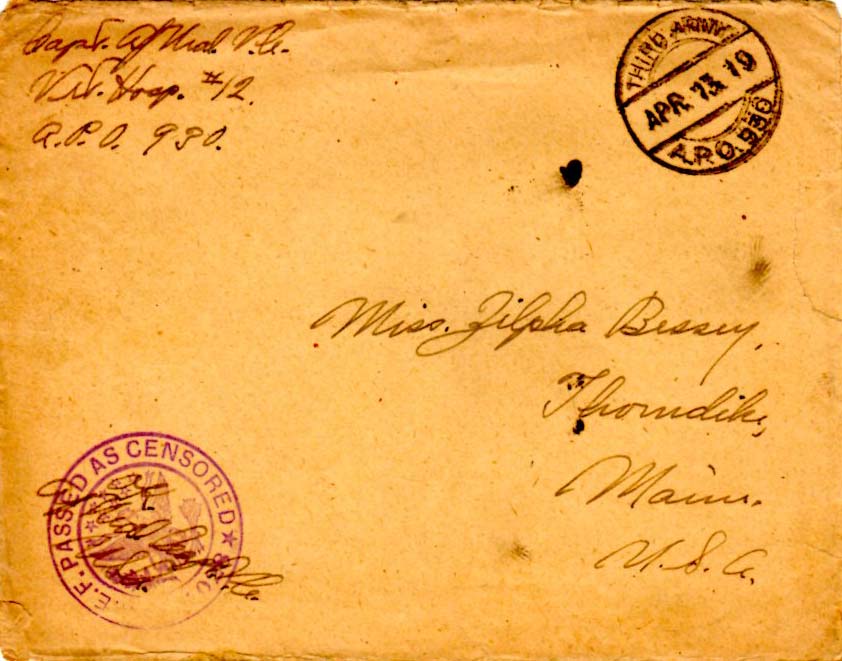 Capt. V.C.
Vet. Hosp. #12.
A.P.O. 930.
THIRD ARMY
APR 13 19
A.P.O. 930
Miss. Zilpha Bessey,
Thorndike,
Maine.
U.S.A.
E.F. PASSED AS CENSORED